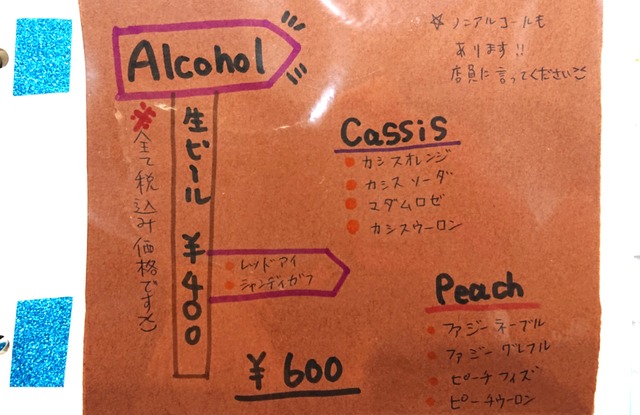 Alcohol
☆ノンアルコールも
あります!!
店員に言ってください
※全て税込み価格です
生ビール ¥400
レッドアイ
シャンディガフ
Cassis
カシスオレンジ
カシスソーダ
マダムロゼ
カシスウーロン
Peach
ファジーネーブル
ファジーグレフル
ピーチフィズ
ピーチウーロン
¥600